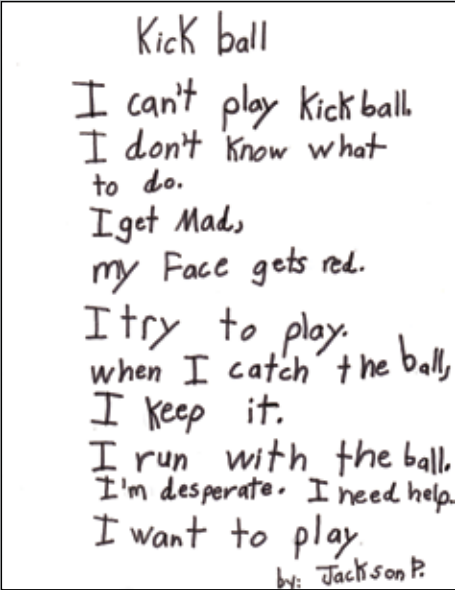 Kick ball
I can't play kickball.
I don't know what
to do.
I get Mad,
my Face gets red.
I try to play.
when I catch the ball,
I keep it.
I run with the ball.
I'm desperate. I need help.
I want to play
by: Jackson P.